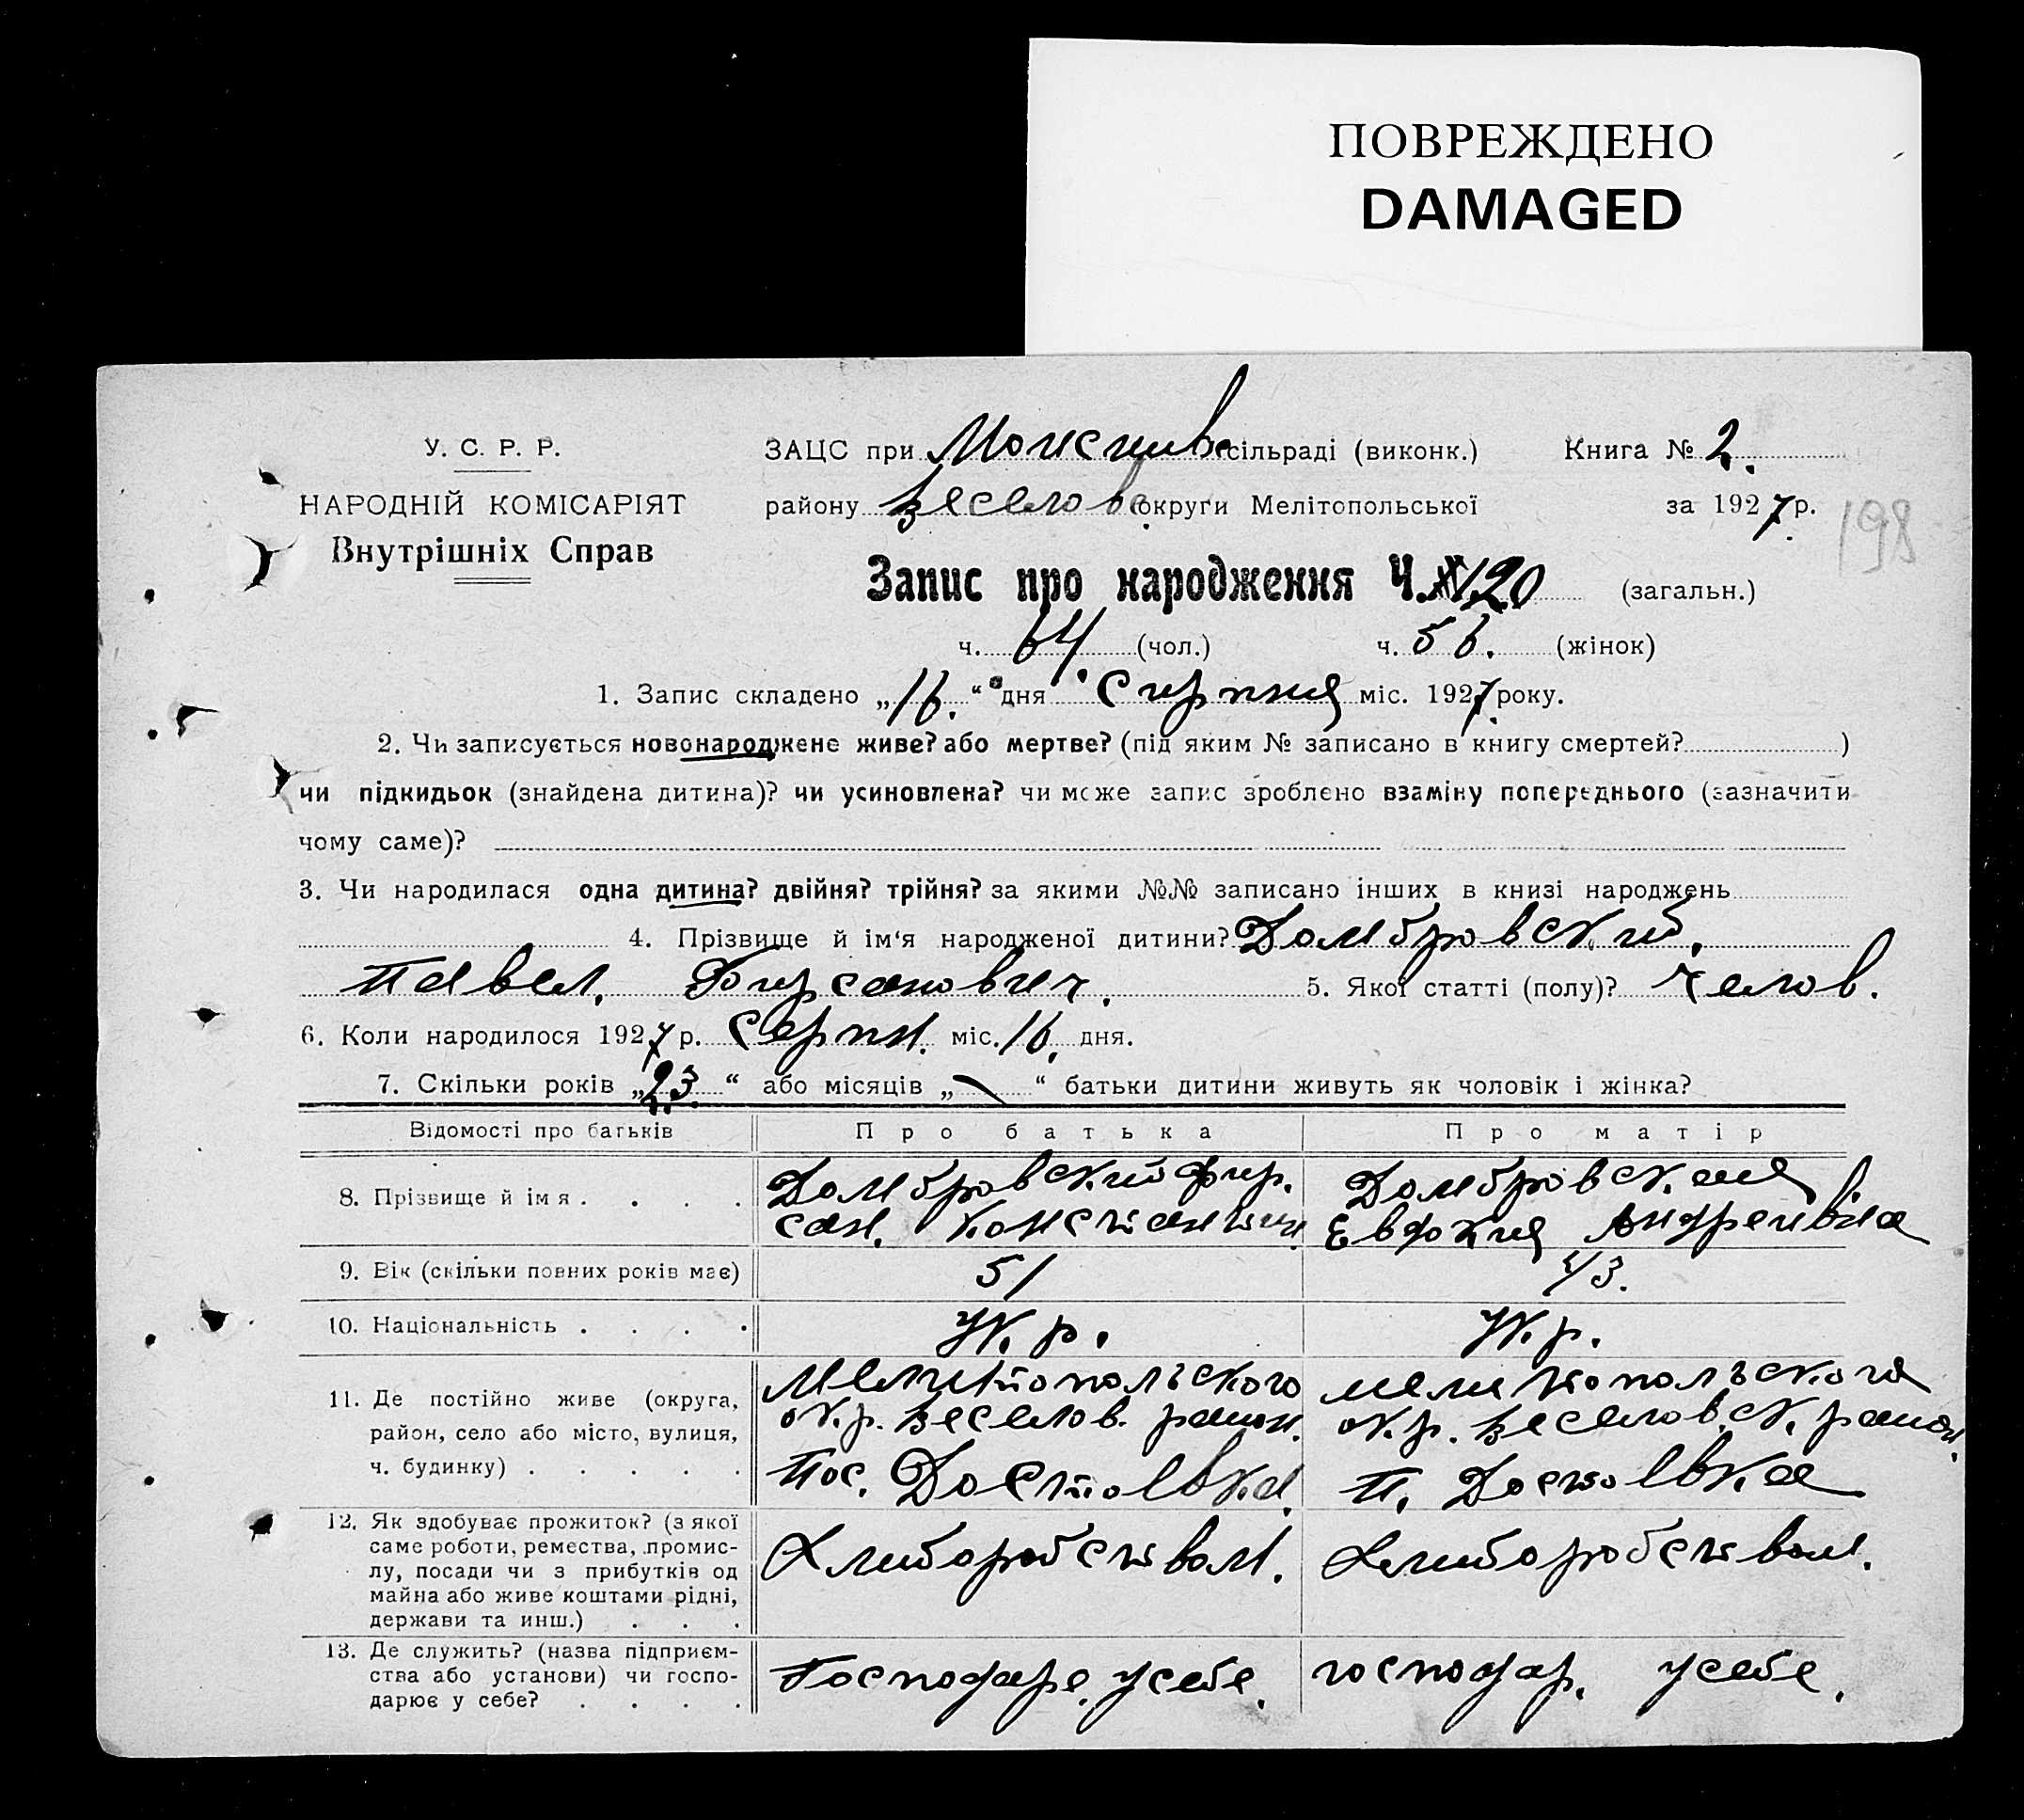 ПОВРЕЖДЕНО
DAMAGED
У. С. Р. Р.
НАРОДНІЙ КОМІСАРІЯТ
Внутрішніх Справ
ЗАЦС при сільраді (виконк.) Книга № 2.
району Веселовс округи Мелітопольської за 1927 р.
198
Запис про народження Ч. 120 (загальн.)
ч. 64. (чол.) ч. 56. (жінок)
1. Запис складено „16.“ дня Сирпня міс. 1927 року.
2. Чи записується новонароджене живе? або мертве? (під яким № записано в книгу смертей? )
чи підкидьок (знайдена дитина)? чи усиновлена? чи може запис зроблено взаміну попереднього (зазначити
чому саме)?
3. Чи народилася одна дитина? двійня? трійня? за якими №№ записано інших в книзі народжень
4. Прізвище й ім‘я народженої дитини? Домбровский,
Павел. Фирсанович. 5. Якої статті (полу)? челов.
6. Коли народилося 1927 р. Серпн. міс. 16. дня.
7. Скільки років „23“ або місяців „\“ батьки дитини живуть як чоловік і жінка?
Відомості про батьків Про батька Про матір
8. Прізвище й імя . . . . Домбровский Фир. Домбровская
сан. Константин. Евдокия Андреивна
9. Вік (скільки повних років має) 51 43.
10. Національність . . . . Ук. р. Ук. р.
11. Де постійно живе (округа, Мелитопольского мелитопольского
район, село або місто, вулиця, ок.р. Веселов. район. ок.р. Веселовск. район.
ч. будинку) . . . . . Пос. Достоевка. п. Достоевка
12. Як здобуває прожиток? (з якої
саме роботи, ремества, промис- Хлиборобством. Хлиборобством.
лу, посади чи з прибутків од
майна або живе коштами рідні,
держави та инш.) . . .
13. Де служить? (назва підприєм-
ства або установи) чи госпо- Господаре. у себе. господар. у себе.
дарює у себе? . . . .